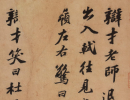 辯才老師退
出入軾往見
嶺左右驚曰
辯才笑曰杜